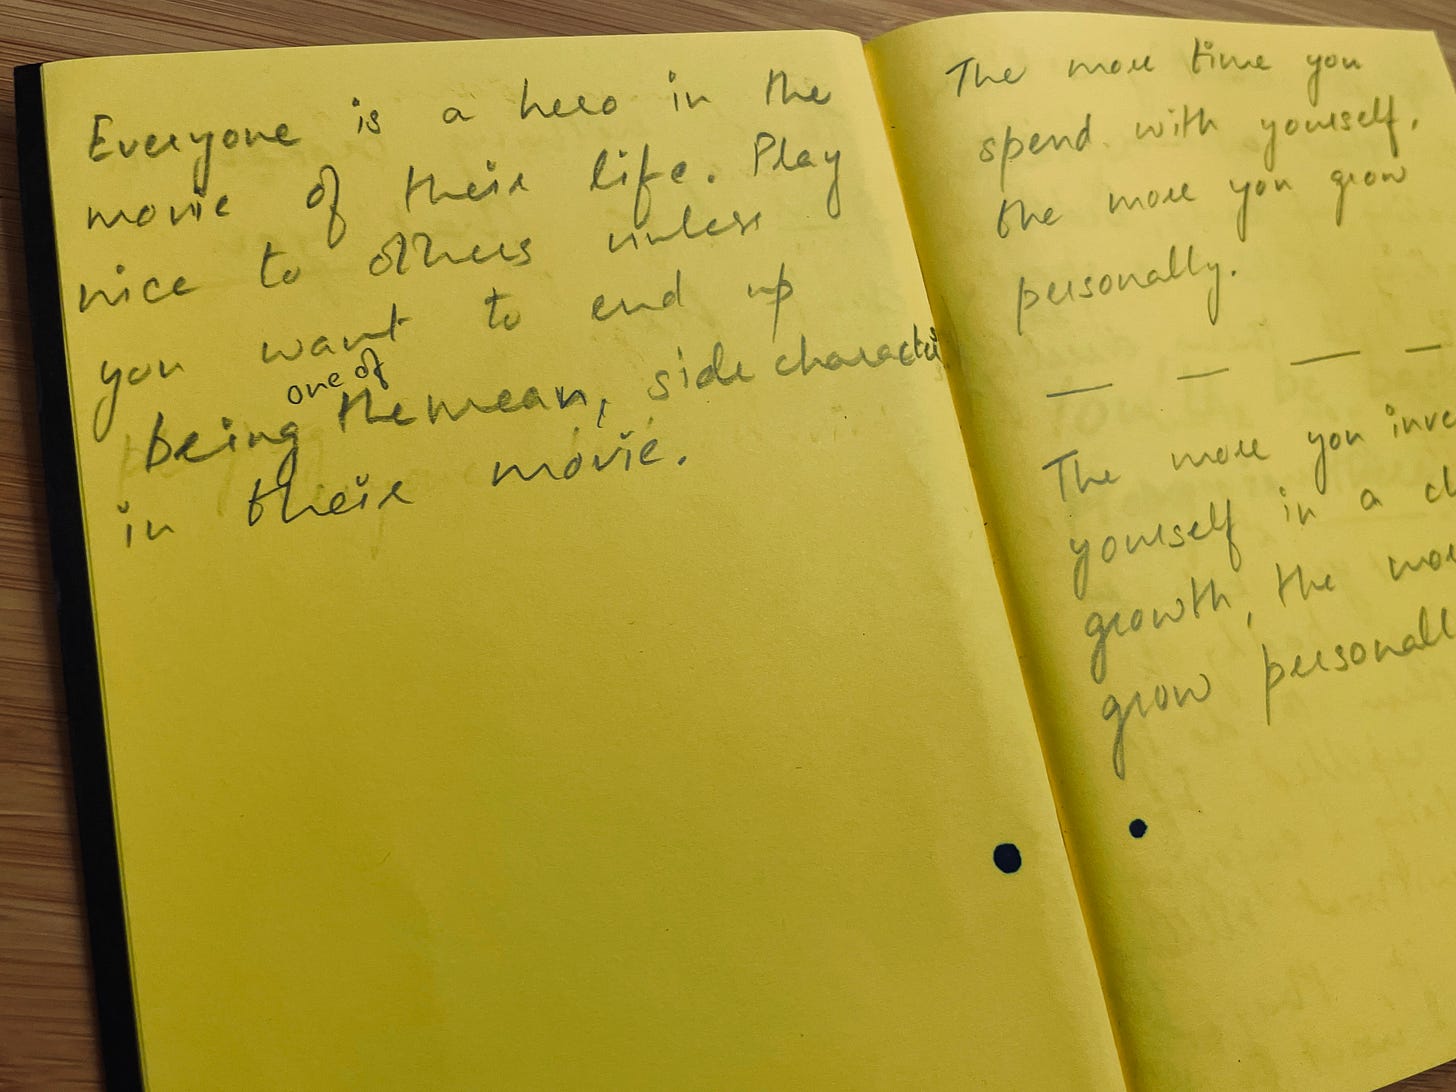 Everyone is a hero in the
movie of their life. Play
nice to others unless
you want to end up
one of
being the mean, side character
in their movie.
The more time you
spend with yourself,
the more you grow
personally.
The more you inve
yourself in a
growth, the
grow personall